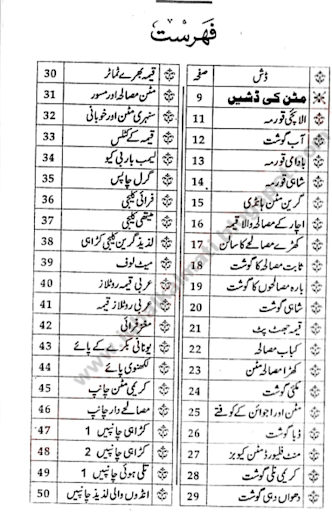 فہرست
ڈش صفحہ
مٹن کی ڈشیں 9
الائچی قورمہ 11
آب گوشت 12
بادامی قورمہ 13
شاہی قورمہ 14
گرین مٹن ہانڈی 15
اچار کے مصالحہ والا قیمہ 16
کھڑے مصالحے کا سالن 17
ثابت مصالحہ کا گوشت 18
بارہ مصالحوں کا گوشت 19
شاہی گوشت 20
قیمہ جھٹ پٹ 21
کباب مصالحہ 22
کھڑا مصالحہ مٹن 23
مکئی گوشت 24
مٹن اور اجوائن کے کوفتے 25
ڈبا گوشت 26
منٹ فلیورڈ مٹن کیوبز 27
کریمی تلی گوشت 28
دھواں دہی گوشت 29
قیمہ بھرے ٹماٹر 30
مٹن مصالحہ اور مسور 31
سنہری مٹن اور خوبانی 32
قیمہ کے کٹلس 33
لیمب باربی کیو 34
گرل چاپس 35
فرائی کلیجی 36
میتھی کلیجی 37
لذیذ گرین کلیجی کڑاہی 38
میٹ لوف 39
عربی قیمہ رولٹز 40
عربی رولٹز قیمہ 41
مغز فرائی 42
یونانی بکرے کے پائے 43
لکھنوی پائے 44
کریمی مٹن چانپ 45
مصالحے دار چانپ 46
کڑاہی چانپیں 1 47
کڑاہی چانپیں 2 48
تلی ہوئی چانپیں 1 49
انڈوں والی لذیذ چانپیں 50